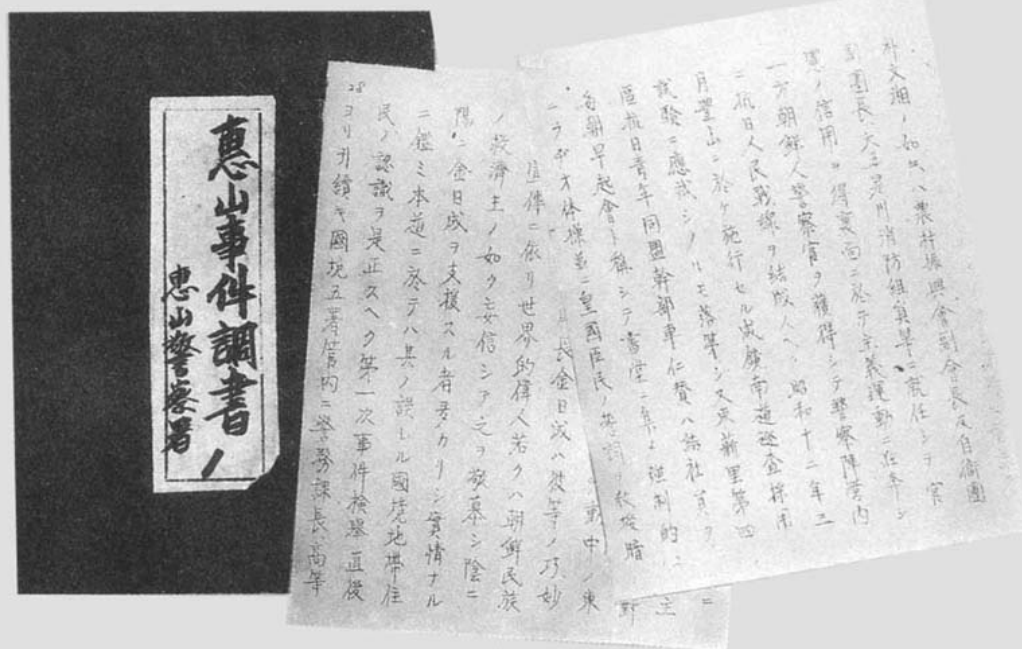 惠山事件調書 1
惠山警察署
朴文湘ノ如キハ農村振興會副會長及自衛團
副團長、消防組員等ニ就任シテ官
憲ノ信用ヲ得裏面ニ於テ主義運動ニ狂奔シ
一方朝鮮人警察官ヲ獲得シテ警察陣営内
ニ抗日人民戰線ヲ結成スヘク昭和十二年三
月豐山ニ於ケ施行セル咸鏡南道巡査採用
試驗ニ應試シタルモ落第シ又東新里第四
區抗日青年同盟幹部車仁贊ハ結社員
毎朝早起會ト稱シテ書堂 強制的ニ
ラヂオ体操並ニ皇國臣民ノ誓詞
動中ノ東
長金日成ハ彼等ノ巧妙
宣傳ニ依リ世界的偉人若クハ朝鮮民族
ノ救濟主ノ如ク妄信シ之ヲ敬慕シ陰ニ
陽ニ金日成ヲ支援スル者多カリシ實情ナル
ニ鑑ミ本道ニ於テハ其ノ誤レル國境地帯住
民ノ認識ヲ是正スヘク第一次事件檢擧直後
ヨリ引續キ國境五署管内ニ警務課長、高等
28